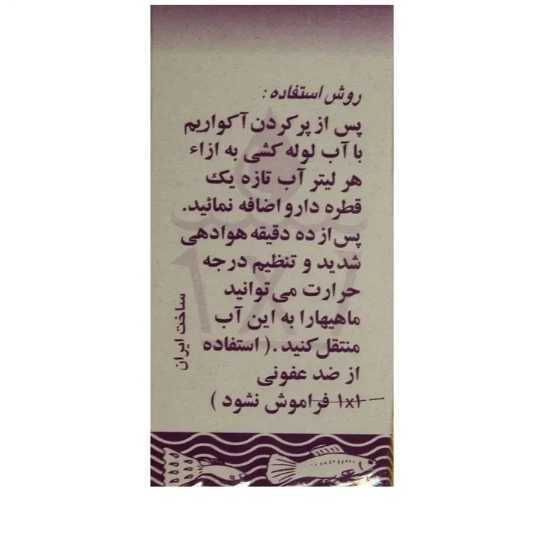 روش استفاده :
پس از پر کردن آکواریم
با آب لوله کشی به ازاء
هر لیتر آب تازه یک
قطره دارو اضافه نمائید.
پس از ده دقیقه هوادهی
شدید و تنظیم درجه
حرارت می توانید
ماهیهارا به این آب
منتقل کنید. ( استفاده
از ضد عفونی
۱x۱ فراموش نشود )
ساخت ایران